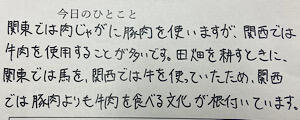 今日のひとこと
関東では肉じゃがに豚肉を使いますが、関西では
牛肉を使用することが多いです。田畑を耕すときに、
関東では馬を、関西では牛を使っていたため、関西
では豚肉よりも牛肉を食べる文化が根付いています。